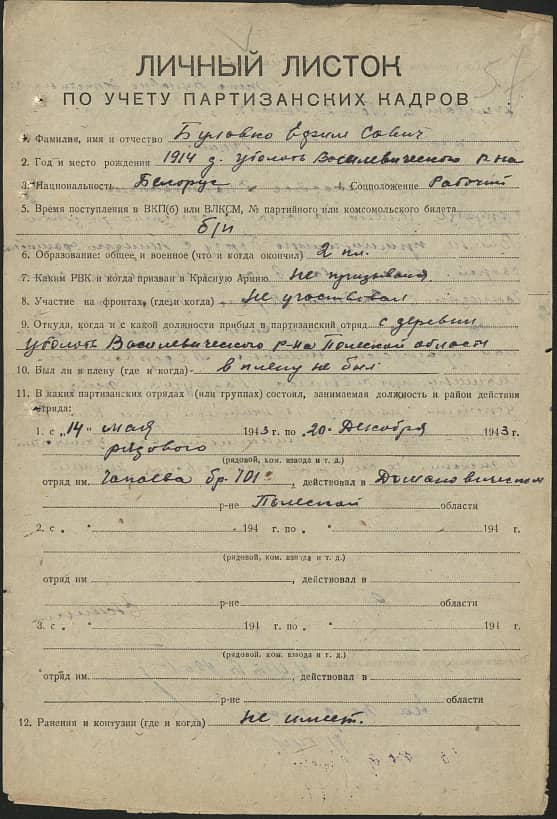 ЛИЧНЫЙ ЛИСТОК
ПО УЧЕТУ ПАРТИЗАНСКИХ КАДРОВ
1. Фамилия, имя и отчество Буловко Ефим Сович
2. Год и место рождения 1914 г. уболоть Василевического р-на
3. Национальность Белорус 4. Соцположение Рабочий
5. Время поступления в ВКП(б) или ВЛКСМ, № партийного или комсомольского билета
б/п
6. Образование: общее и военное (что и когда окончил) 2 кл.
7. Каким РВК и когда призван в Красную Армию Не призывался
8. Участие на фронтах (где и когда) Не участвовал
9. Откуда, когда и с какой должности прибыл в партизанский отряд с деревни
уболоть Василевического р-на Полеской области
10. Был ли в плену (где и когда) в плену не был
11. В каких партизанских отрядах (или группах) состоял, занимаемая должность и район действия
отряда:
1. с „14" мая 1943 г. по 20 Декабря 1943 г.
рядового
(рядовой, ком. взвода и т. д.)
отряд им. Чапаева бр. 101, действовал в Домановическом
р-не Полеской области
2. с „ " 194 г. по „ " 194 г.
(рядовой, ком. взвода и т. д.)
отряд им. , действовал в
р-не области
3. с „ " 194 г. по „ " 194 г.
(рядовой, ком. взвода и т. д.)
отряд им. , действовал в
р-не области
12. Ранения и контузии (где и когда) не имеет.